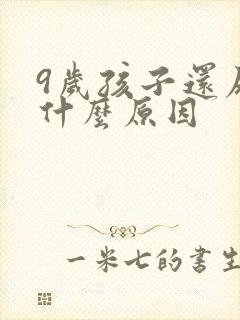 9歲孩子還
什麼原因
一米七的書生